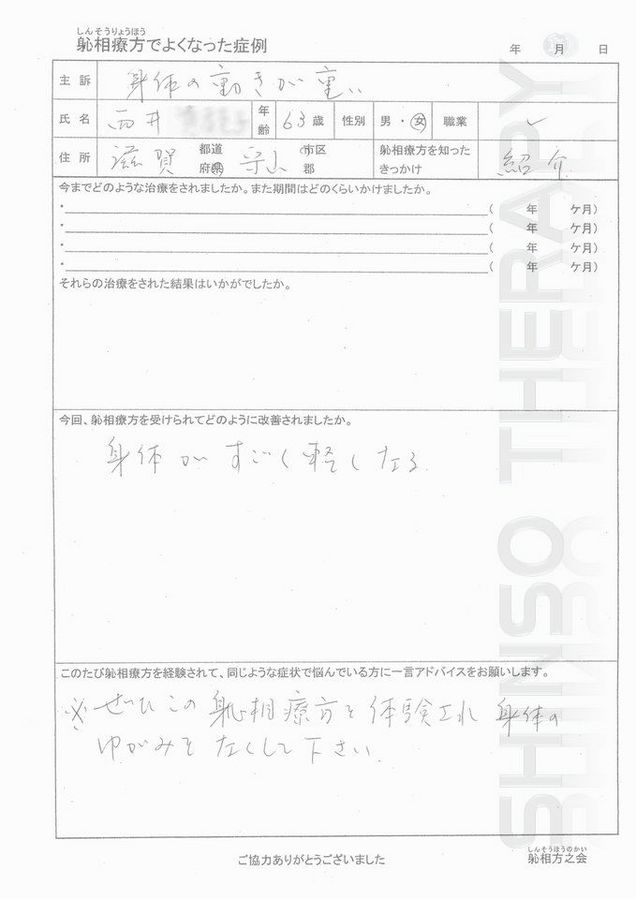 しんそうりょうほう
躰相療方でよくなった症例
年 月 日
主訴 身体の動きが重い
氏名 西井 年齢 63歳 性別 男・女 職業
住所 滋賀 都道府県 守山 市区郡 躰相療方を知ったきっかけ 紹介
今までどのような治療をされましたか。また期間はどのくらいかけましたか。
・ ( 年 ケ月)
・ ( 年 ケ月)
・ ( 年 ケ月)
・ ( 年 ケ月)
それらの治療をされた結果はいかがでしたか。
今回、躰相療方を受けられてどのように改善されましたか。
身体がすごく軽くなる
このたび躰相療方を経験されて、同じような症状で悩んでいる方に一言アドバイスをお願いします。
※ぜひこの躰相療方を体験され身体の
ゆがみをなくして下さい.
SHINSO THERAPY
ご協力ありがとうございました
しんそうほうのかい
躰相方之会